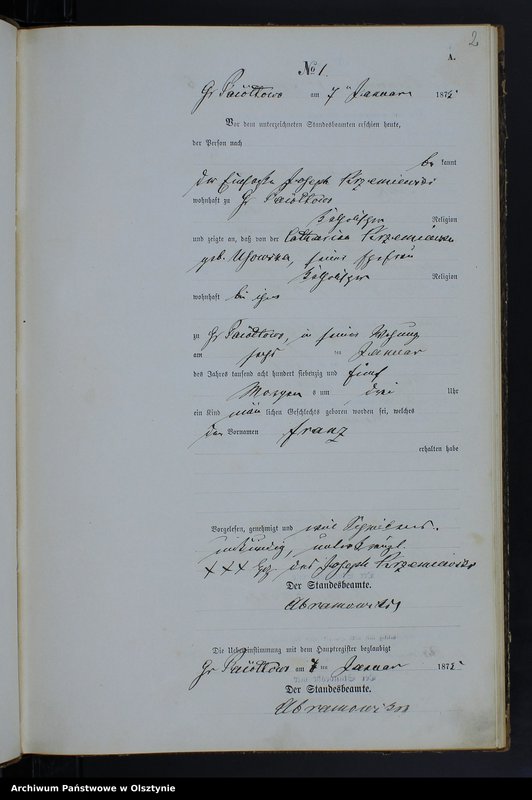 2
A.
No 1.
Gr Pacoltowo am 7ten Januar 1875
Vor dem unterzeichneten Standesbeamten erschien heute,
der Person nach
be kannt
der Joseph Krzeminski
wohnhaft zu Gr Pacoltowo
katholischer Religion
und zeigte an, daß von der Catharina Krzeminska
geb. seiner Ehefrau
katholischer Religion
wohnhaft bei ihm
zu Gr Pacoltowo, in seiner Wohnung
am sechsten Januar
des Jahres tausend acht hundert siebenzig und fünf
Morgens um drei Uhr
ein Kind männlichen Geschlechts geboren worden sei, welches
den Vornamen Franz
erhalten habe
Vorgelesen, genehmigt und weil Schreibens
unkundig, unterkreuzt
XXX des Joseph Krzeminski
Der Standesbeamte.
Abramowski
Die Uebereinstimmung mit dem Hauptregister beglaubigt
Gr Pacoltowo am 7ten Januar 1875
Der Standesbeamte.
Abramowski
Archiwum Państwowe w Olsztynie